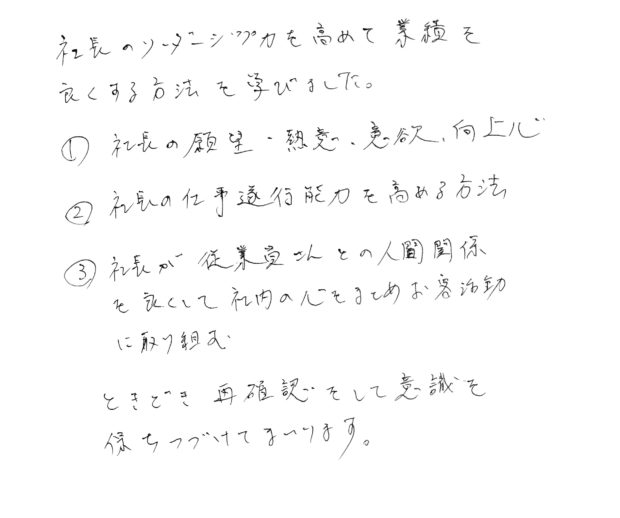 社長のリーダーシップ力を高めて業績を
良くする方法を学びました。
① 社長の願望・熱意、意欲、向上心
② 社長の仕事遂行能力を高める方法
③ 社長が従業員さんとの人間関係
を良くして社内の心をまとめお客活動
に取り組む
ときどき再確認をして意識を
保ちつづけてまいります。